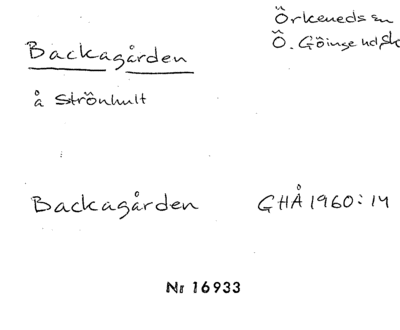 Örkeneds sn
Backagården
Ö. Göinge hd, Sk
å Strönhult
Backagården GHÅ 1960:14
Nr 16933